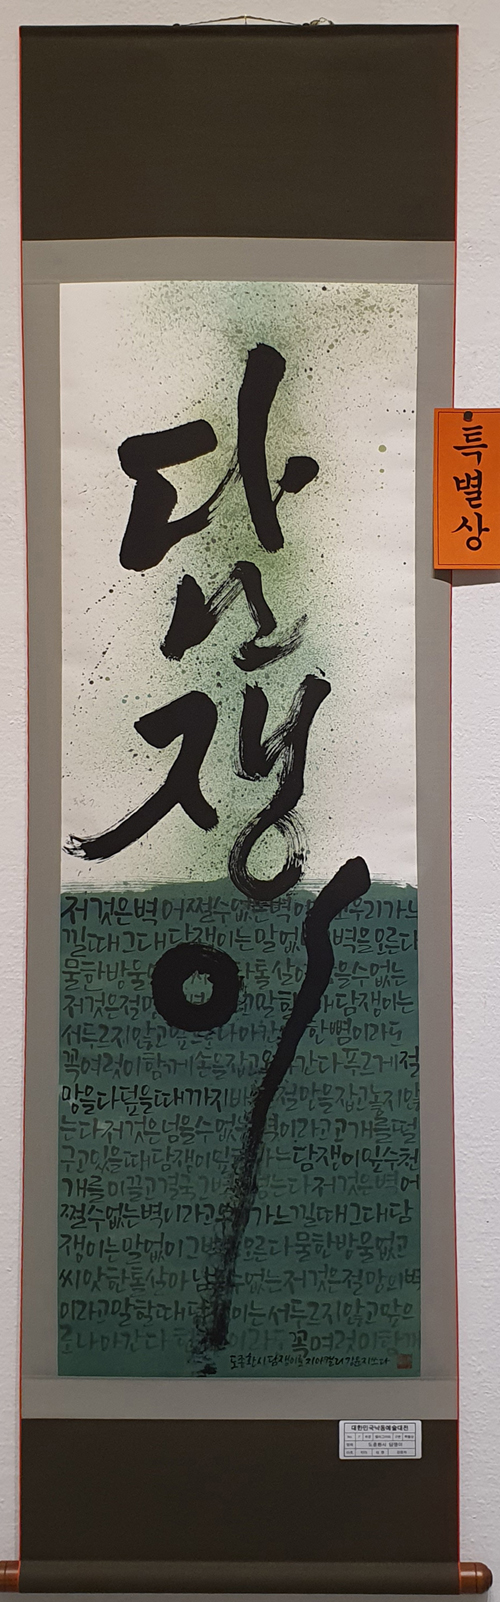 담쟁이
특별상
저것은벽 어쩔수없는벽이 우리가느
낄때 그대 담쟁이는말없 벽을오른다
물한방울 톨살아 을수없는
저것은절망 말할 담쟁이는
서두르지않고앞으로나아간 한뼘이라도
꼭여럿이함께손을잡고 간다푸르게절
망을다덮을때까지바 절망을잡고놓지않
는다저것은넘을수없 벽이라고고개를떨
구고있을때담쟁이잎 는담쟁이잎수천
개를이끌고결국그벽 넘는다저것은벽어
쩔수없는벽이라고우 가느낄때그대담
쟁이는말없이그벽 오른다물한방울없고
씨앗한톨살아남 수없는저것은절망의벽
이라고말할때담 이는서두르지않고앞으
로나아간다한 이라도꼭여럿이함께
도종환시 담쟁이를 쓰다
대한민국낙동예술대전
도종환시 담쟁이